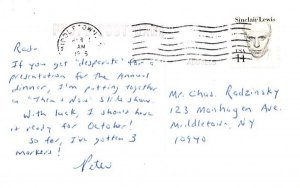 Rad-
If you get "desperate" for a
presentation for the Annual
dinner, I'm putting together
a "Then & Now" slide show.
With luck, I should have
it ready for October!
So far, I've gotten 3
markers!
Peter
MIDDLETOWN
AM
Sinclair Lewis
USA
14
Mr. Chas. Radzinsky
123 Monhagen Ave.
Middletown, NY
10940